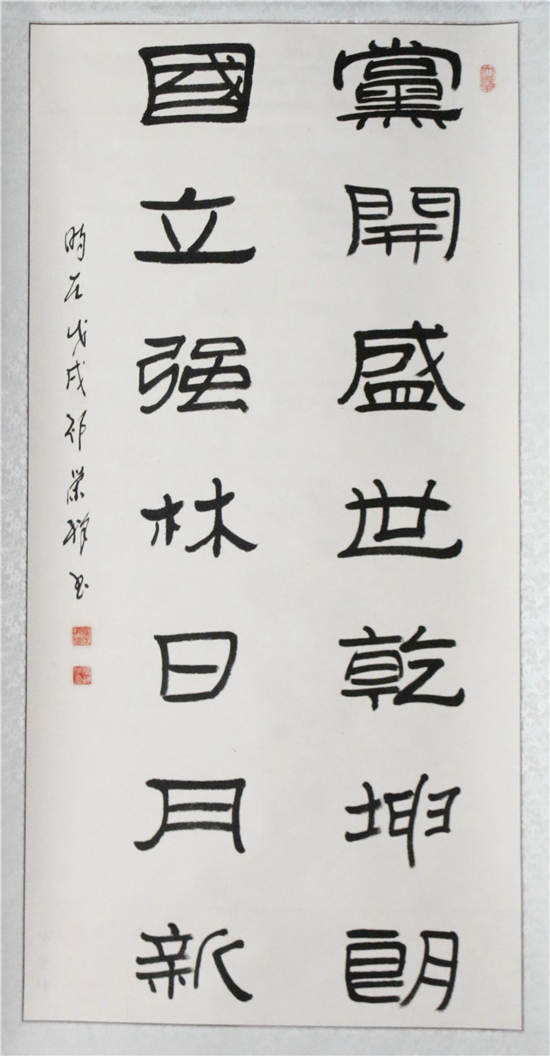 黨開盛世乾坤朗
國立强林日月新
時在戊戌祁榮祥书